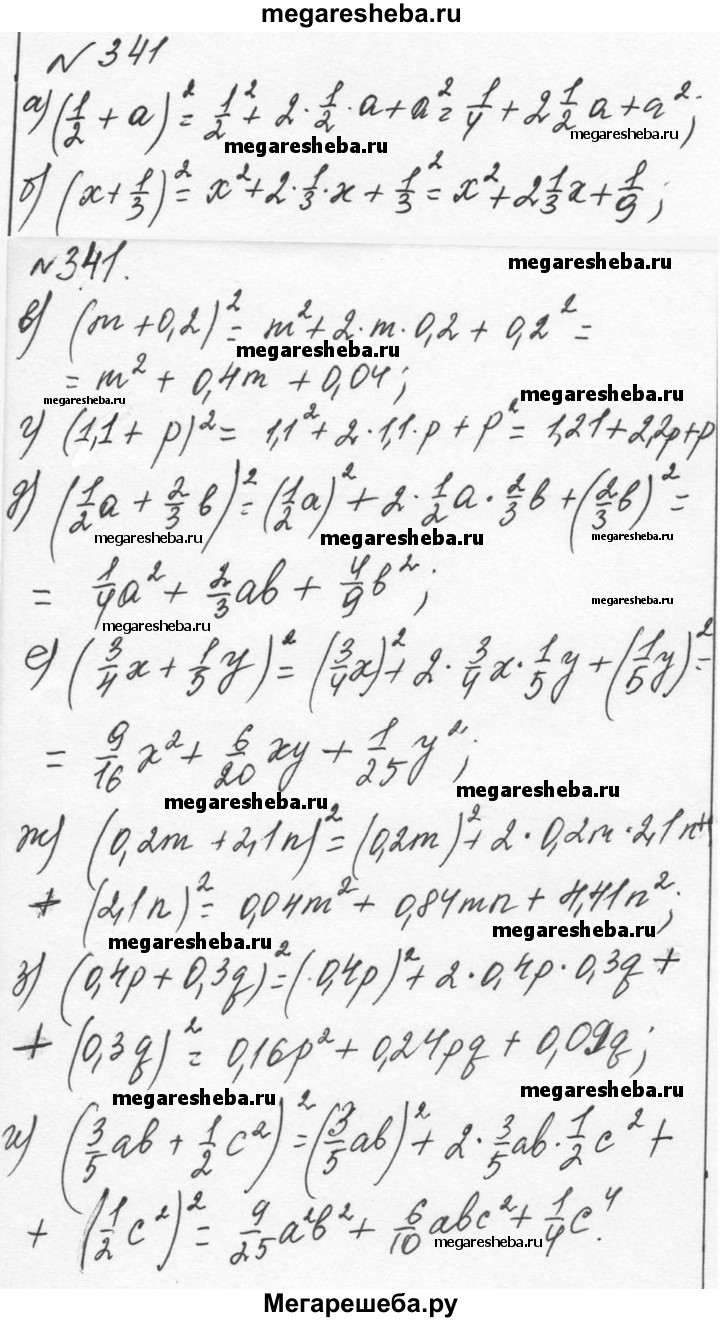 megaresheba.ru
№ 341
а) (1/2 + a)² = 1/2² + 2 · 1/2 · a + a² = 1/4 + 2 1/2 a + a²;
megaresheba.ru
megaresheba.ru
б) (x + 1/3)² = x² + 2 · 1/3 · x + 1/3² = x² + 2 1/3 x + 1/9;
№ 341.
megaresheba.ru
в) (m + 0,2)² = m² + 2 · m · 0,2 + 0,2² =
megaresheba.ru
= m² + 0,4m + 0,04;
megaresheba.ru
megaresheba.ru
г) (1,1 + p)² = 1,1² + 2 · 1,1 · p + p² = 1,21 + 2,2p + p
д) (1/2 a + 2/3 в)² = (1/2 a)² + 2 · 1/2 a · 2/3 в + (2/3 в)² =
megaresheba.ru
megaresheba.ru
megaresheba.ru
= 1/4 a² + 2/3 aв + 4/9 в²;
megaresheba.ru
megaresheba.ru
е) (3/4 x + 1/5 y)² = (3/4 x)² + 2 · 3/4 x · 1/5 y + (1/5 y)² =
= 9/16 x² + 6/20 xy + 1/25 y²;
megaresheba.ru
megaresheba.ru
ж) (0,2m + 2,1n)² = (0,2m)² + 2 · 0,2m · 2,1n +
+ (2,1n)² = 0,04m² + 0,84mn + 4,41n²;
megaresheba.ru
megaresheba.ru
з) (0,4p + 0,3q)² = (0,4p)² + 2 · 0,4p · 0,3q +
+ (0,3q)² = 0,16p² + 0,24pq + 0,09q;
megaresheba.ru
megaresheba.ru
и) (3/5 aв + 1/2 c²)² = (3/5 aв)² + 2 · 3/5 aв · 1/2 c² +
+ (1/2 c²)² = 9/25 a²в² + 6/10 aвc² + 1/4 c⁴.
megaresheba.ru
Мегарешеба.ру